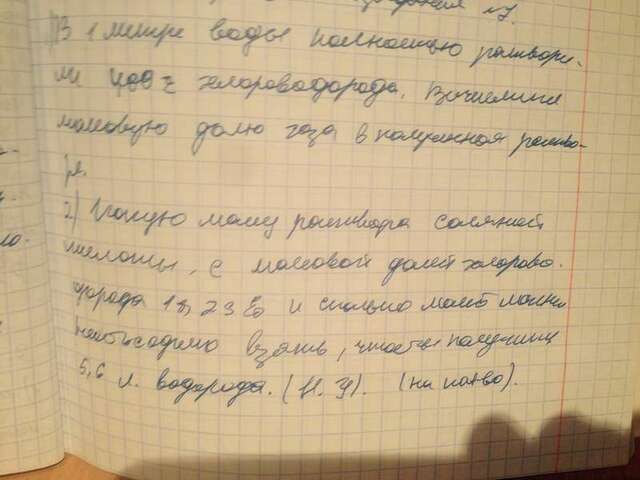 №7.
1) В 1 литре воды полностью раствори-
ли 400 г хлороводорода. Вычислите
массовую долю газа в полученном раство-
ре.
2) Какую массу раствора соляной
кислоты, с массовой долей хлорово-
дорода и сколько
необходимо взять, чтобы получить
5,6 л. водорода. (Н. У). (на кол-во).